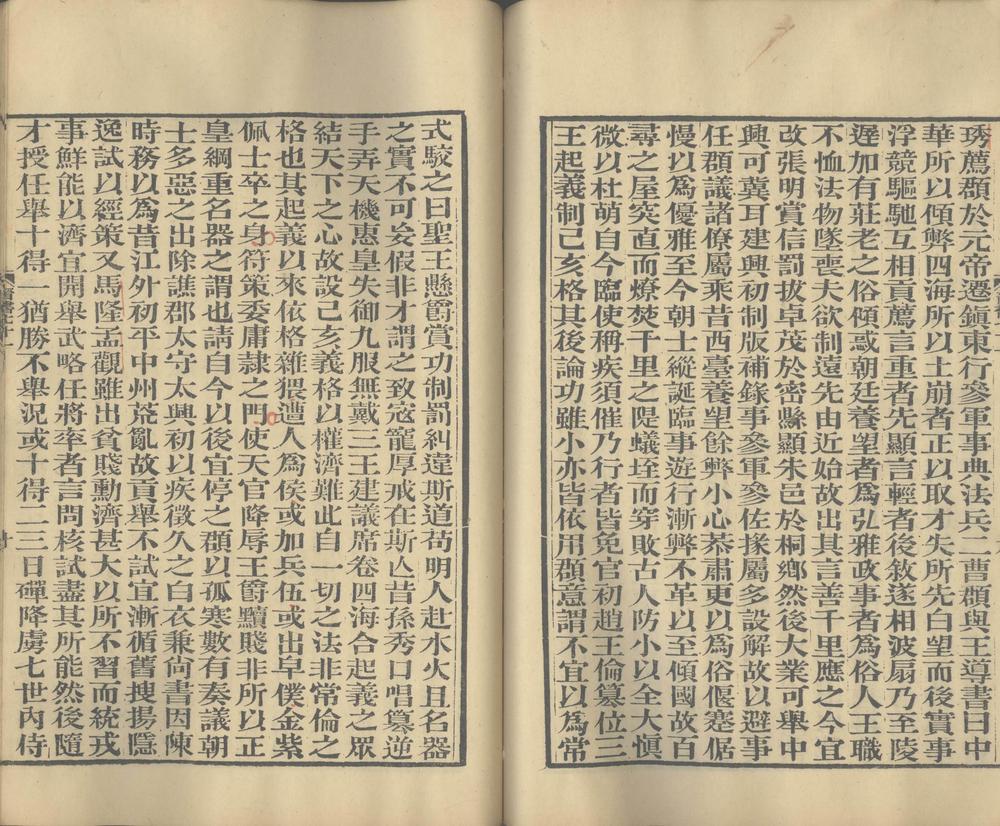 琇薦頵於元帝遷鎭東行參軍事典法兵二曹頵與王導書曰中
華所以傾弊四海所以土崩者正以取才失所先白望而後實事
浮競驅馳互相貢薦言重者先顯言輕者後敘遂相波扇乃至陵
遲加有莊老之俗傾惑朝廷養望者爲弘雅政事者爲俗人王職
不恤法物墜喪夫欲制遠先由近始故出其言善千里應之今宜
改張明賞信罰拔卓茂於密縣顯朱邑於桐鄉然後大業可舉中
興可冀耳建興初制版補錄事參軍參佐掾屬多設解故以避事
任頵議諸僚屬乘昔西臺養望餘弊小心恭肅更以爲俗偃蹇倨
慢以爲優雅至今朝士縱誕臨事遊行漸弊不革以至傾國故百
尋之屋突直而燎焚千里之隄蟻垤而穿敗古人防小以全大愼
微以杜萌自今臨使稱疾須催乃行者皆免官初趙王倫篡位三
王起義制己亥格其後論功雖小亦皆依用頵意謂不宜以爲常
式駮之曰聖王懸爵賞功制罰糾違斯道苟明人赴水火且名器
之實不可妄假非才謂之致寇寵厚戒在斯亾昔孫秀口唱篡逆
手弄天機惠皇失御九服無戴三王建議席卷四海合起義之眾
結天下之心故設己亥義格以權濟難此自一切之法非常倫之
格也其起義以來依格雜猥遭人爲侯或加兵伍或出皁僕金紫
佩士卒之身符策委庸隸之門使天官降辱王爵黷賤非所以正
皇綱重名器之謂也請自今以後宜停之頵以孤寒數有奏議朝
士多惡之出除譙郡太守太興初以疾徵久之白衣兼尙書因陳
時務以爲昔江外初平中州荒亂故貢舉不試宜漸循舊搜揚隱
逸試以經策又馬隆孟觀雖出貧賤勳濟甚大以所不習而統戎
事鮮能以濟宜開舉武略任將率者言問核試盡其所能然後隨
才授任舉十得一猶勝不舉況或十得二三日磾降虜七世內侍